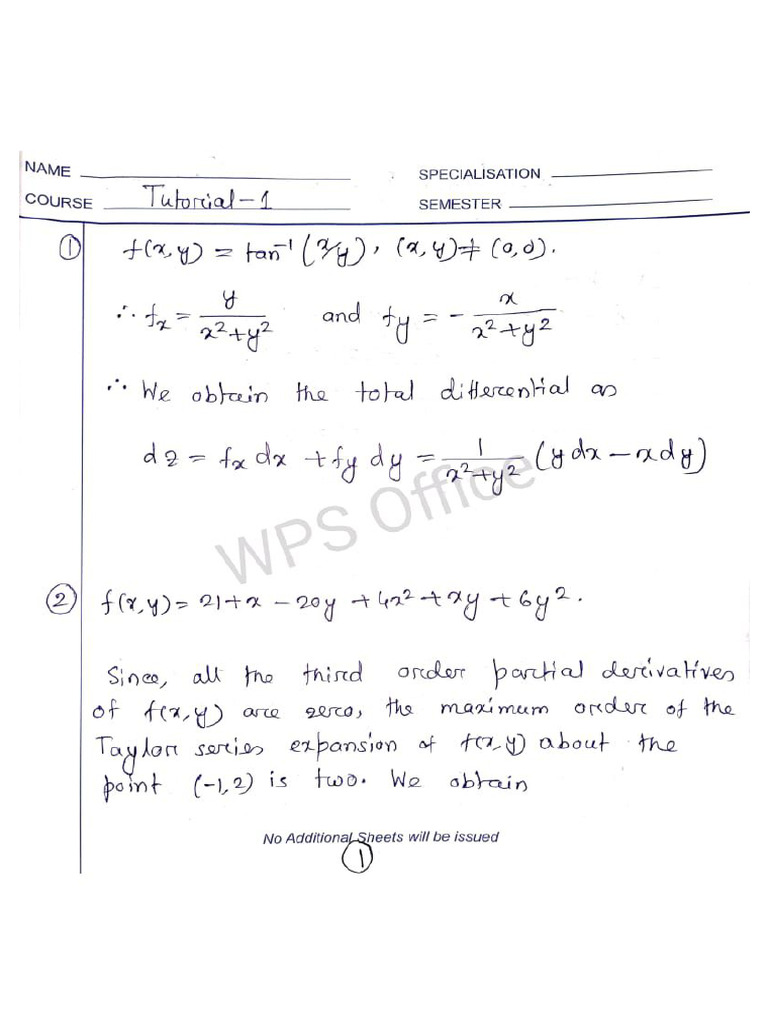 NAME SPECIALISATION
COURSE Tutorial-1 SEMESTER
① f(x,y) = tan⁻¹(x/y), (x,y) ≠ (0,0).
∴ fx = y/(x²+y²) and fy = - x/(x²+y²)
∴ We obtain the total differential as
dz = fx dx + fy dy = 1/(x²+y²) (y dx - x dy)
WPS Office
② f(x,y) = 21+x - 20y + 4x² + xy + 6y².
Since, all the third order partial derivatives
of f(x,y) are zero, the maximum order of the
Taylor series expansion of f(x,y) about the
point (-1,2) is two. We obtain
No Additional Sheets will be issued
①